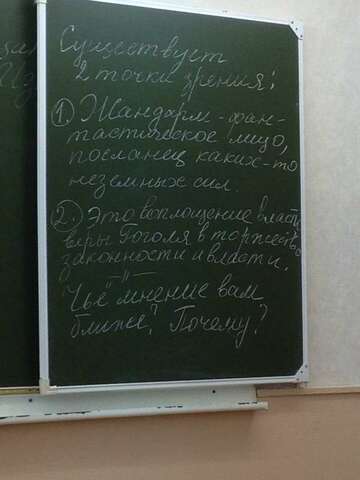 Существует
2 точки зрения:
1. Жандарм - фан-
тастическое лицо,
посланец каких-то
неземных сил.
2. Это воплощение власти
веры Гоголя в торжество
законности и власти.
-"-
Чьё мнение вам
ближе? Почему?